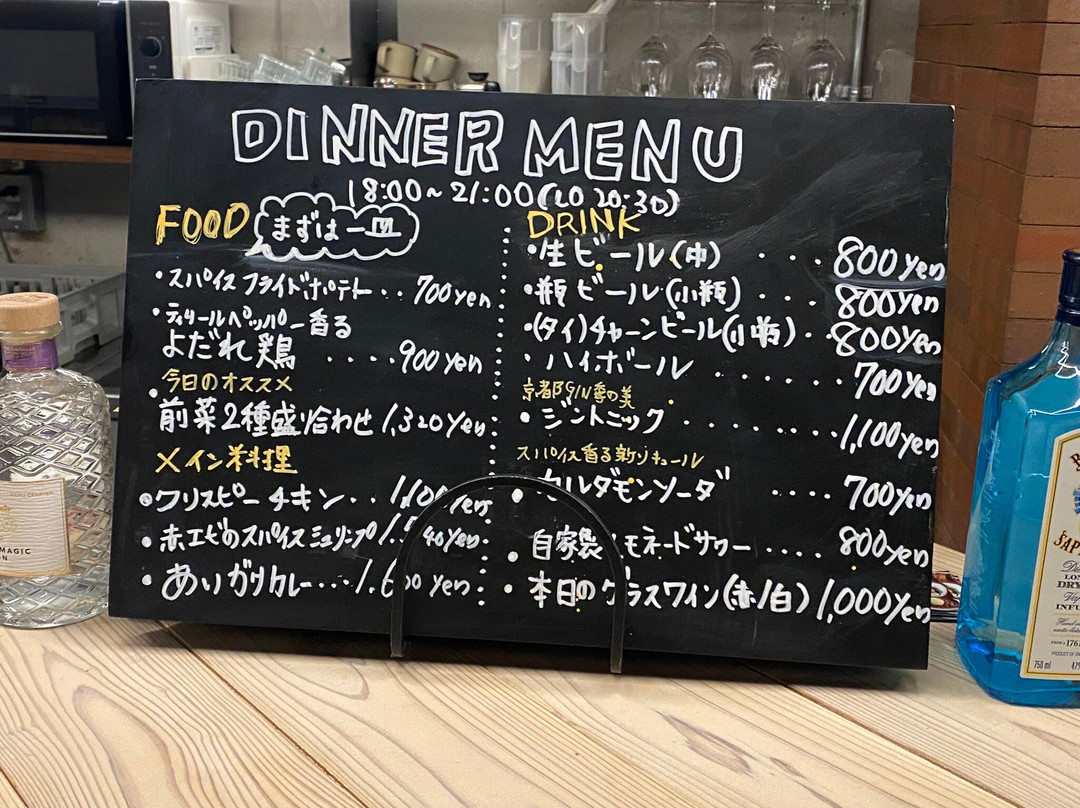 DINNER MENU
18:00~21:00(LO 20:30)
FOOD まずは一皿
・スパイスフライドポテト・・700yen
・ティリールペッパー香る
よだれ鶏 ・・・・900yen
今日のオススメ
・前菜2種盛り合わせ 1,320yen
メイン料理
・クリスピーチキン・・
・赤エビのスパイスシュリンプ
・あいがけカレー・・・
DRINK
・生ビール(中) ・・・800yen
・瓶ビール(小瓶)・・・800yen
・(タイ)チャーンビール(小瓶)・800yen
・ハイボール ・・・・・・700yen
京都産GIN季の美
・ジントニック ・・・・・・・1,100yen
スパイス香る新リキュール
・カルダモンソーダ ・・・・700yen
・自家製レモネードサワー・・・・800yen
・本日のグラスワイン(赤/白) 1,000yen
MAGIC
SAP
750 ml